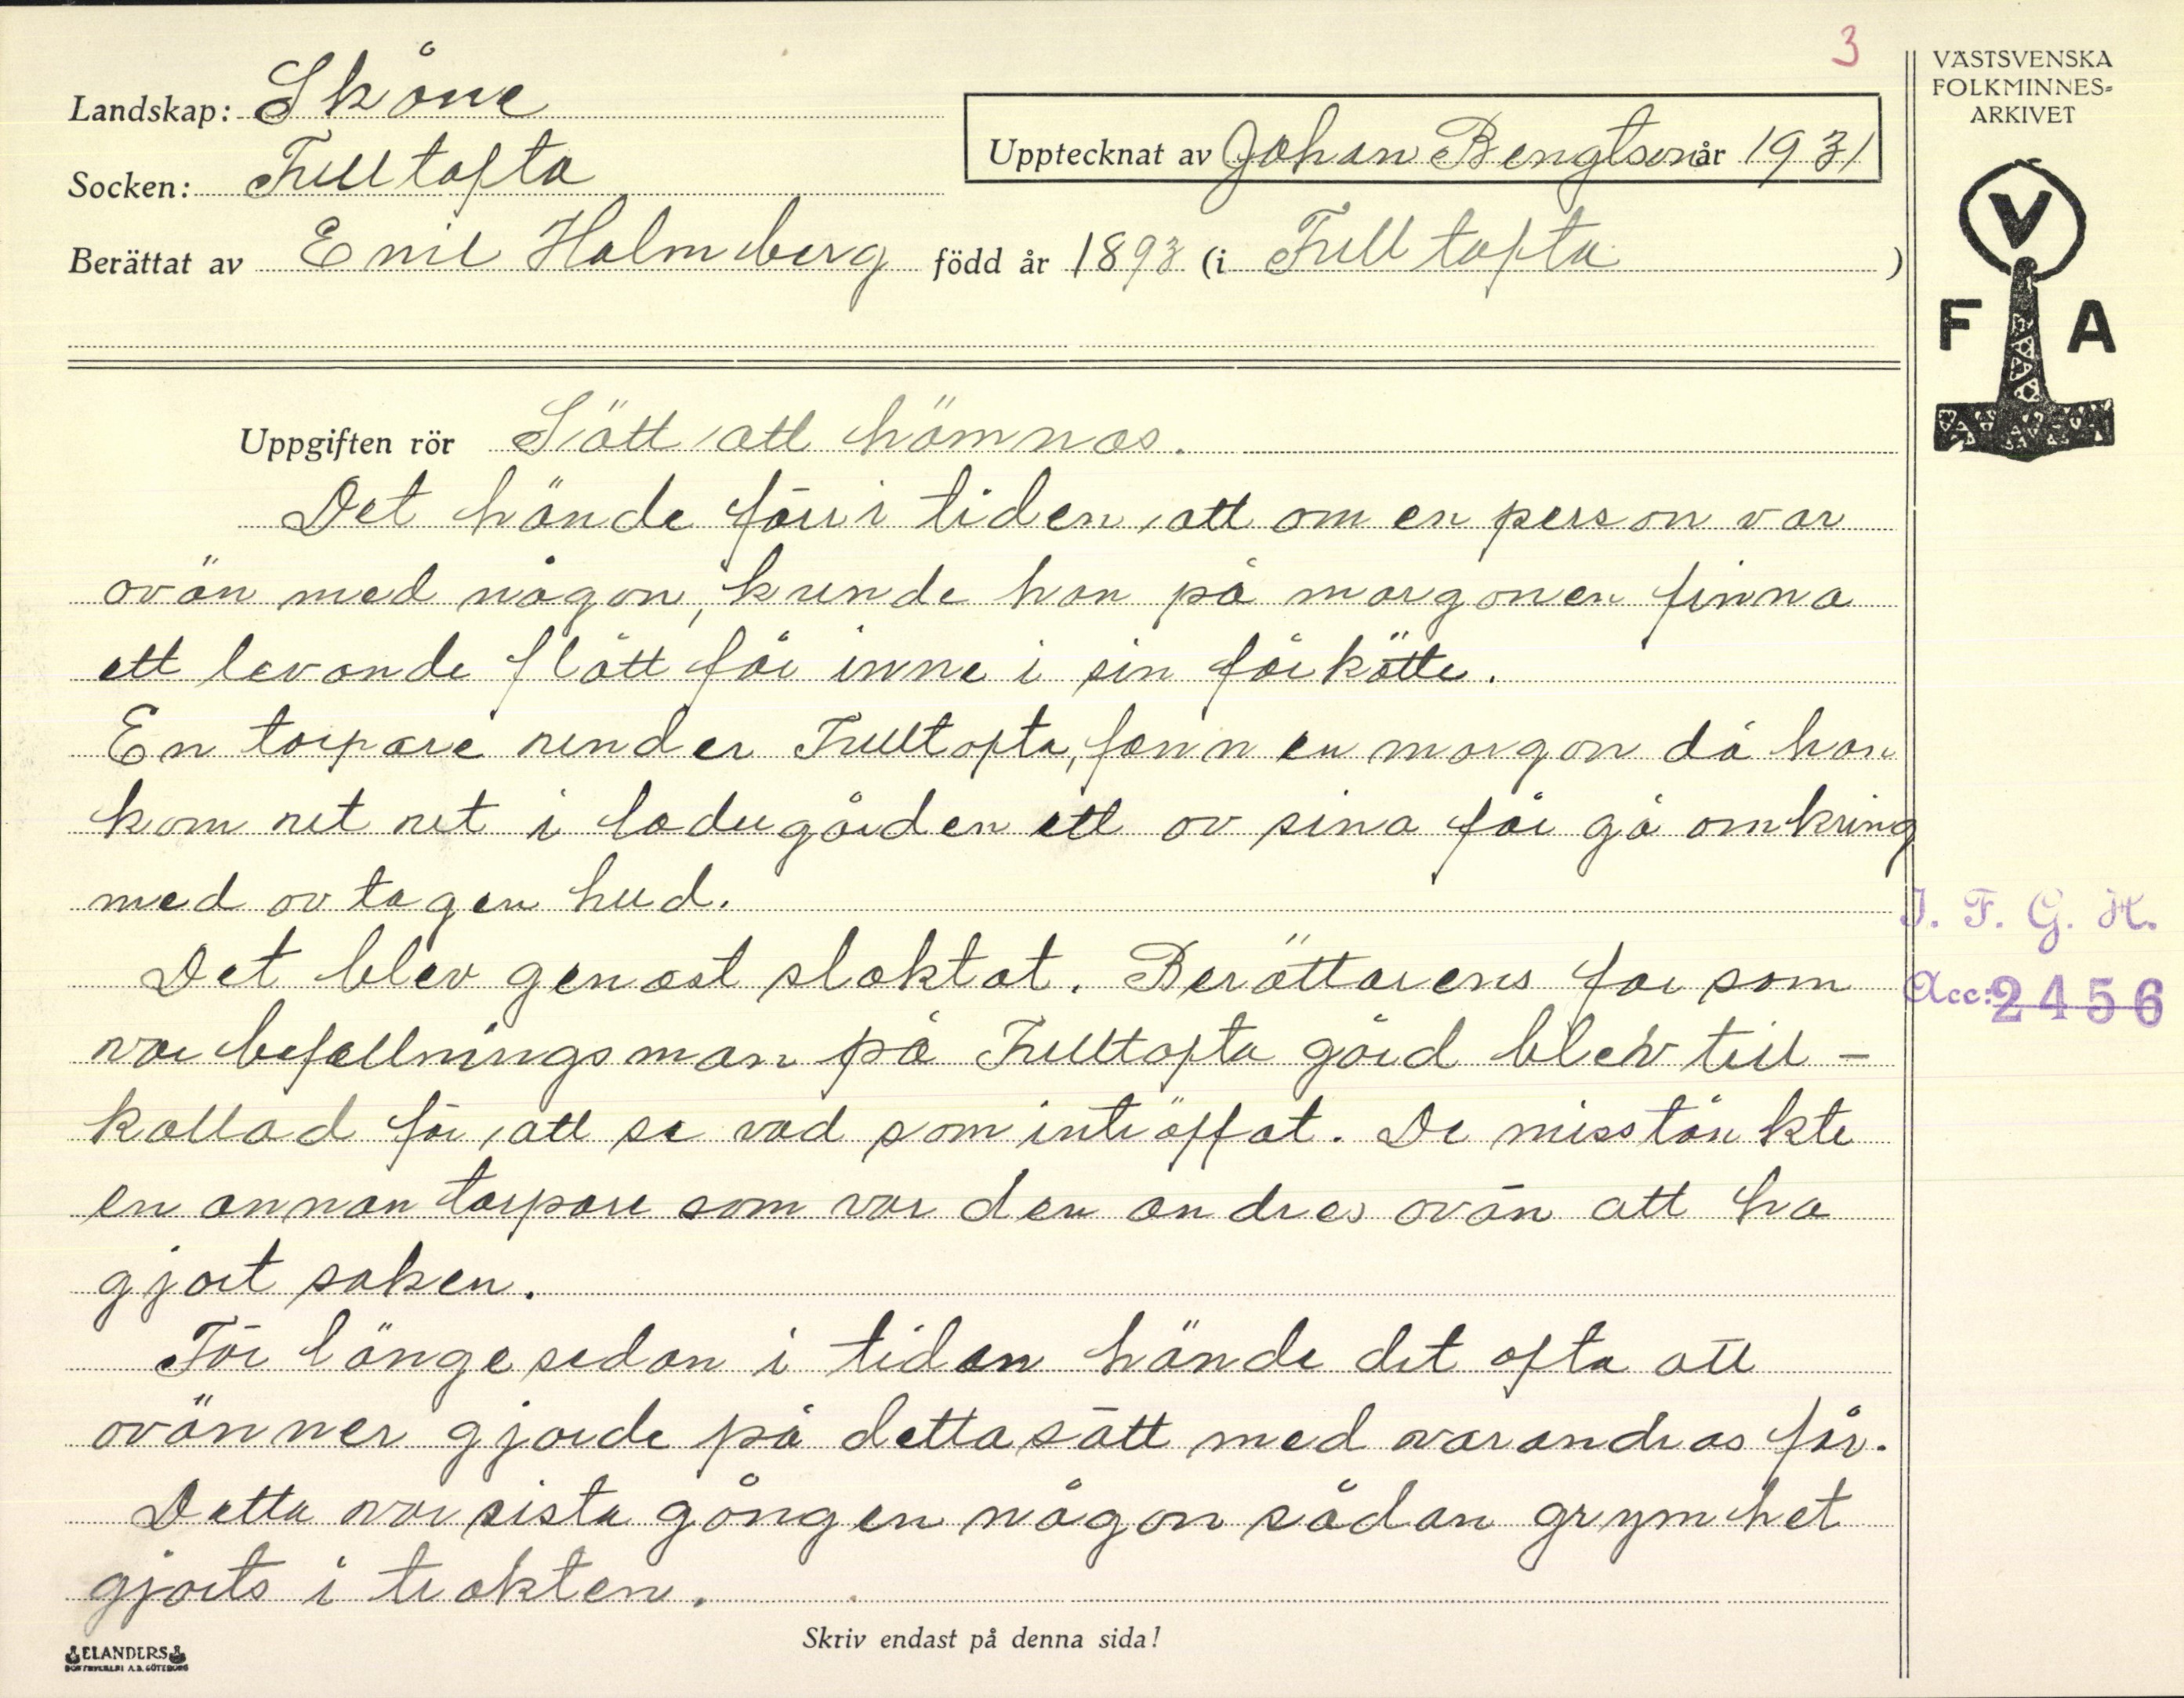 3
Landskap: Skåne
Socken: Fulltofta
Upptecknat av Johan Bengtson år 1931
Berättat av Emil Holmberg född år 1893 (i Fulltofta )
VÄSTSVENSKA
FOLKMINNES-
ARKIVET
V
F A
Uppgiften rör Sätt att hämnas.
Det hände förr i tiden, att om en person var
ovän med någon, kunde han på morgonen finna
ett levande flått får inne i sin fårkätte.
En torpare under Fulltofta, fann en morgon då han
kom ut ut i ladugården ett av sina får gå omkring
med avtagen hud.
Det blev genast slaktat. Berättarens far som
var befallningsman på Fulltofta gård blev till-
kallad för, att se vad som inträffat. De misstänkte
en annan torpare som var den andres ovän att ha
gjort saken.
För länge sedan i tiden hände det ofta att
ovänner gjorde på detta sätt med varandras får.
Detta var sista gången någon sådan grymhet
gjorts i trakten.
I. F. G. H.
Acc: 2456
Skriv endast på denna sida!
ELANDERS
BOKTRYCKERI A.B. GÖTEBORG